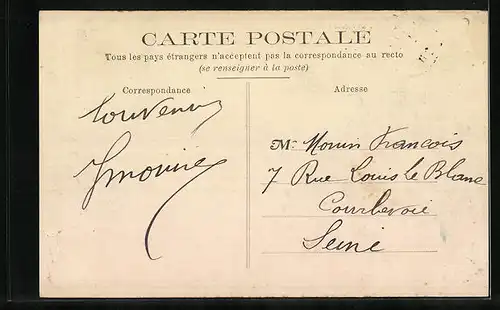 CARTE POSTALE
Tous les pays étrangers n'acceptent pas la correspondance au recto
(se renseigner à la poste)
Correspondance
Souvenir
Adresse
Mr Monin Francois
7 Rue Louis Le Blanc
Courbevoie
Seine